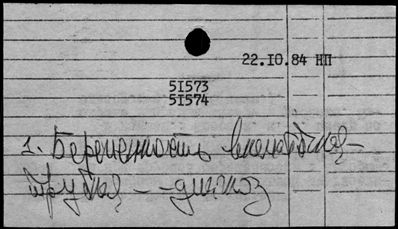 22.IO.84 НП
5I573
5I574
1. Беременность внематочная –
трубная – – диагноз